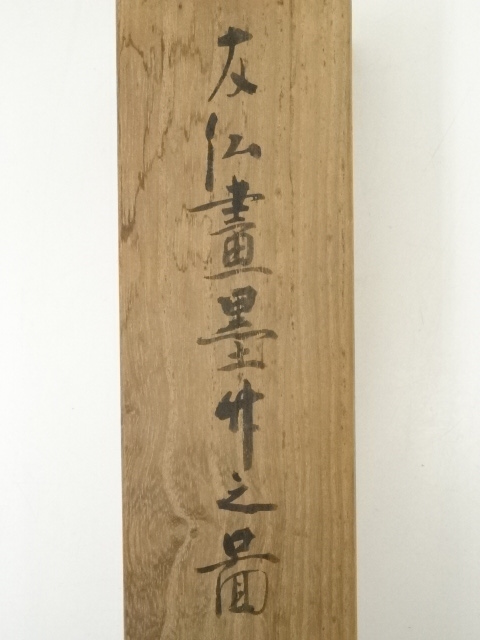 友仙畫墨竹之圖